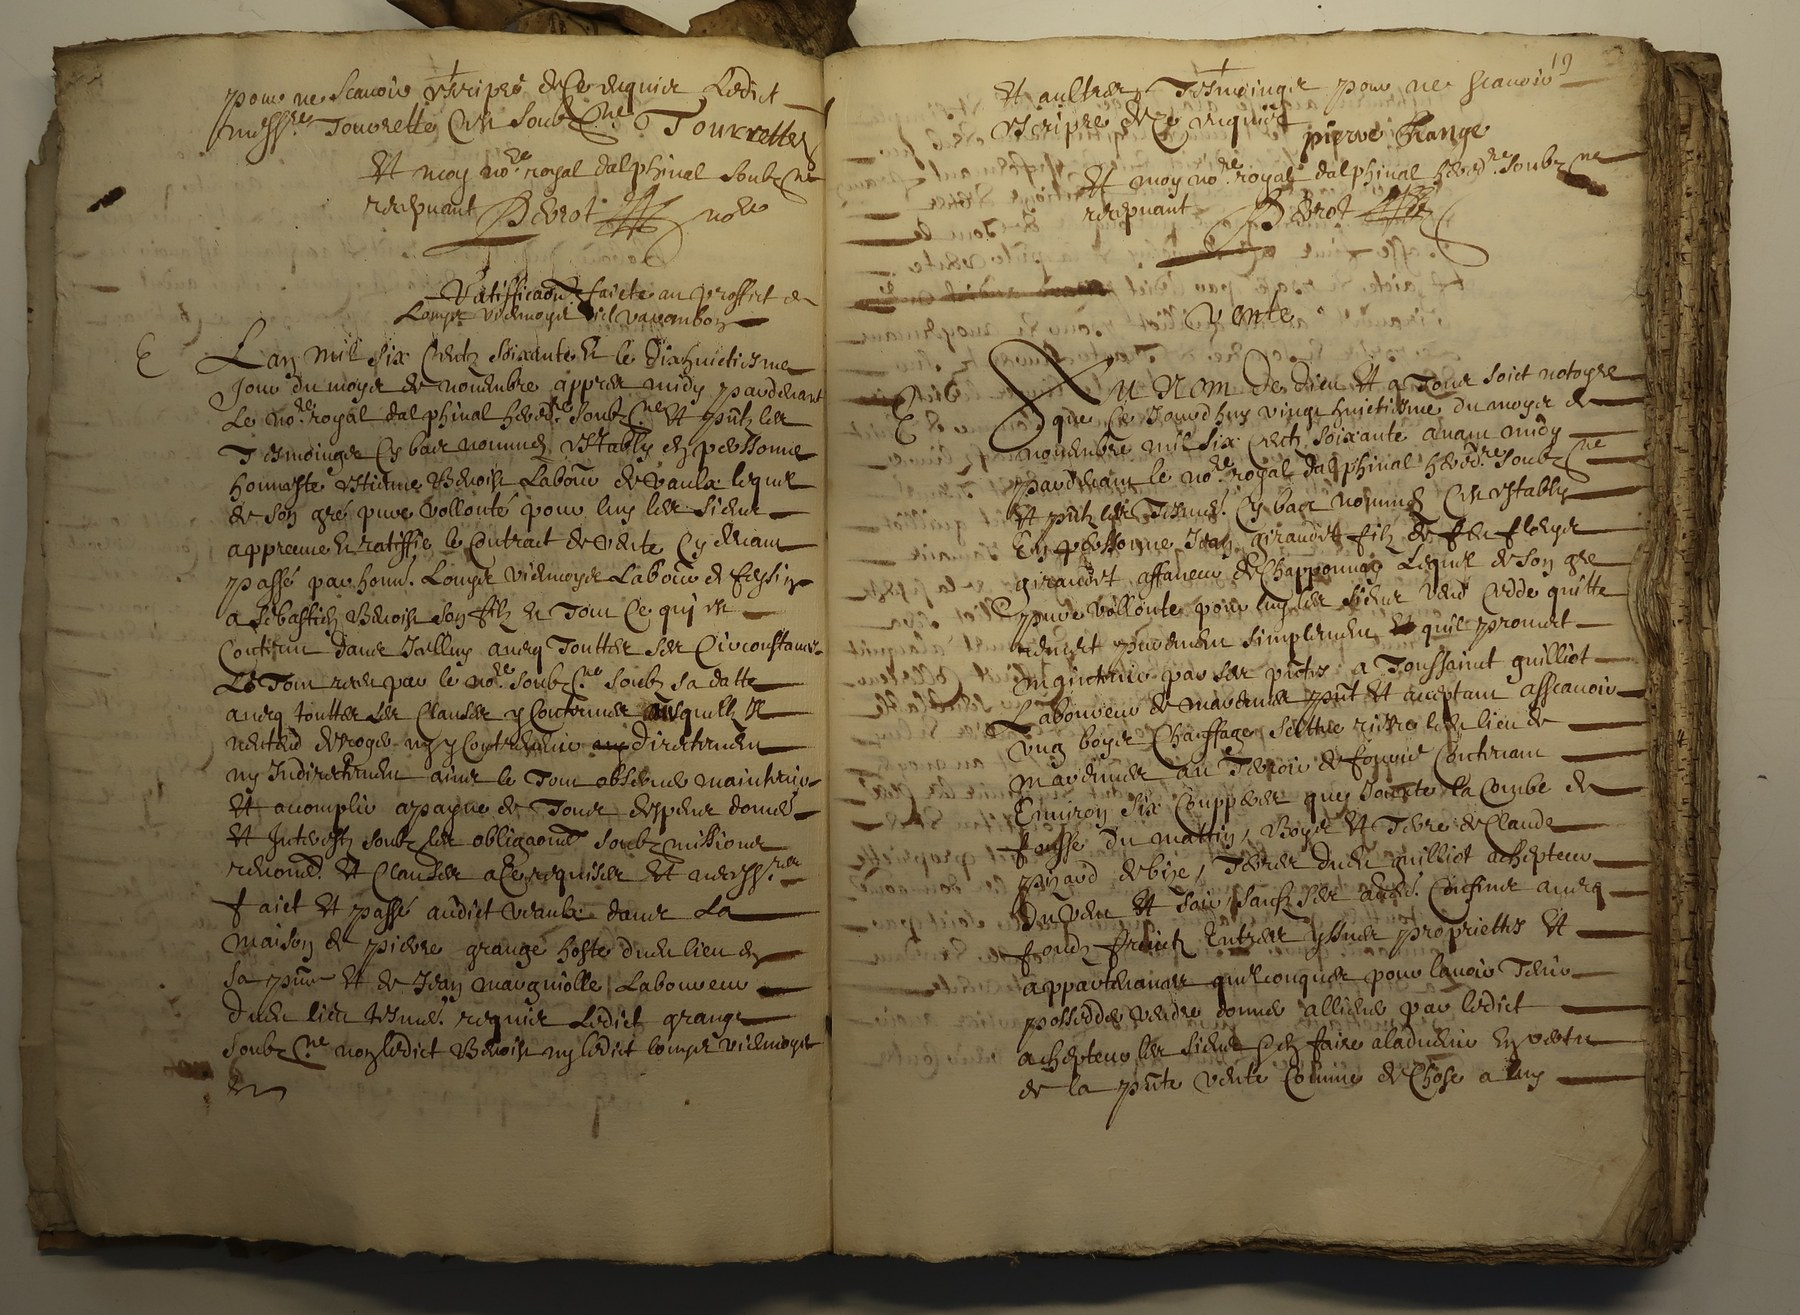 pour ne scavoir escripre de ce enquier Ledict
mess.re Tourrette cest soubz.ne Tourrettes
Et moy no.re royal dalphinal soubz.ne
recepvant Perrot no.re
Ratifficaon faicte au proffict de
Louys viemoys
Lan mil six centz soixante et le dixhuictiesme
Jour du moys de novembre appres midy pardevant
Le no.re royal dalphinal hered.re soubz.ne et pntz les
Tesmoings cy bas nommez estably en personne
honneste estienne Benoist Labour de vaulx lequel
de son gre pure vollonté pour luy les siens
appreuve et ratiffie le contract de vente cy devant
passé par honn. Louys viemoys Labour de feysin
a sebastien Benoist son filz et tout ce qui est
contenu dans Icelluy avecq touttes ses circonstances
Le tout receu par le no.re soubz.ne soubz sa datte
avecq touttes les clauses y contenues ausquelz il
nentend desroger ny y contrevenir directement
ny Indirectement ains le tout observer maintenir
et acomplir a payne de tous despens domes
et Interestz soubz les obligaons soubzmissions
renons. et clauses a ce requises et necess.res
faict et passé audict vaulx dans La
maison de pierre grange hoste dudict lieu en
sa pnce et de Jean marguiolle Laboureur
dudict lieu tesmes. requis Ledict grange
soubz.ne non ledict Benoist ny ledict Louys viemoys
en
19
et aultres Tesmoings pour ne scavoir
escripre de ce requis pierre Grange
Et moy no.re royal dalphinal hered.re soubz.ne
recepvant Perrot
Vente
Au Nom de dieu et a Tous soict notoyre
que ce Jourdhuy vingt huictiesme du moys de
novembre mil six centz soixante avant midy
pardevant le no.re royal dalphinal hered.re soubz.ne
et pntz les Tesmes. cy bas nommez cest estably
En personne Jean giraudet filz de feu
giraudet affaneur de Chapponnay Lequel de son gre
pure vollonte pour luy les siens vend cedde quitte
remet purement simplement et quil promet
maintenir par ses pntes a Toussainct guilliot
Laboureur de marennes pnt et acceptant asscavoir
ung boys Chauffage scittue riere le lieu de
marennes au Terroir de contenant
Environ six couppees que Jouxte la combe de
fousse du mattin, Boys et Terre de Claude
pizard de bize, Terres dudict guilliot achepteur
du vent et soir, sauf ses aultres. confins avecq
fondz fruictz Entrees yssues proprietes et
appartenances quelconques pour lavoir Tenir
possedder vendre donner alliener par ledict
achepteur les siens et en faire a ladvenir en vertu
de la pnte vente comme de chose a luy